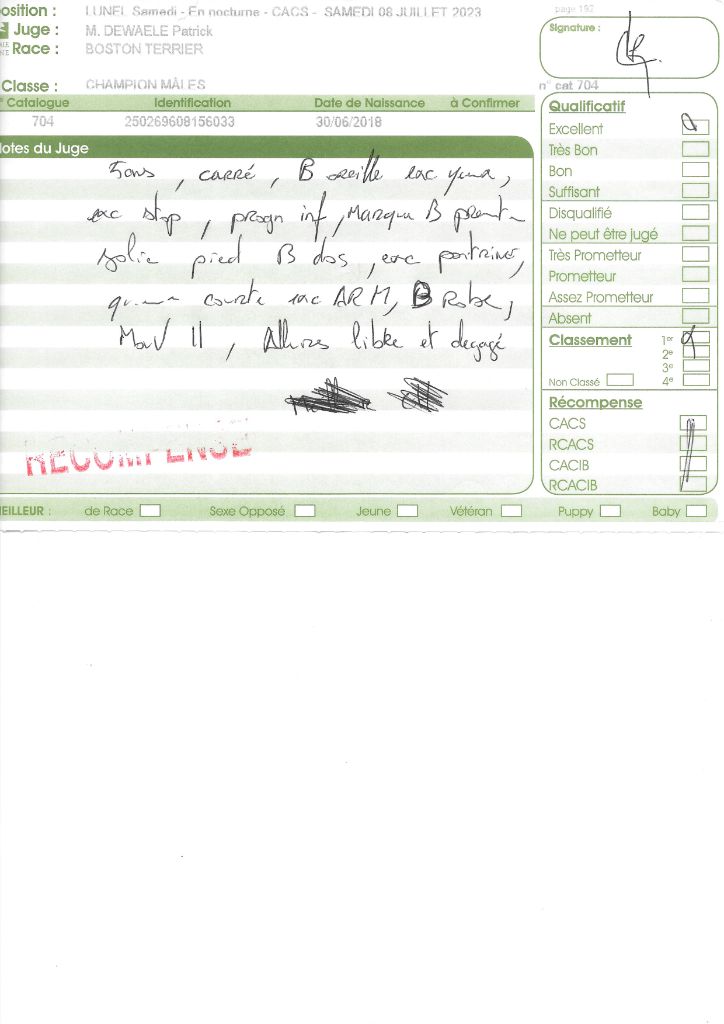 osition : LUNEL Samedi - En nocturne - CACS - SAMEDI 08 JUILLET 2023
Juge : M. DEWAELE Patrick
Race : BOSTON TERRIER
Classe : CHAMPION MÂLES
page 192
Signature :
n° cat 704
Catalogue Identification Date de Naissance à Confirmer
704 250269608156033 30/06/2018
Notes du Juge
5ans, carré, B oreille exc yeux,
exc stop, progn inf, Marqué B
solie pied B dos, exc poitrine,
queue courte exc ARM, B Robe,
Mouv II, Allures libre et degagé
RECOMPENSE
Qualificatif
Excellent
Très Bon
Bon
Suffisant
Disqualifié
Ne peut être jugé
Très Prometteur
Prometteur
Assez Prometteur
Absent
Classement 1er
2e
3e
Non Classé 4e
Récompense
CACS
RCACS
CACIB
RCACIB
EILLEUR : de Race Sexe Opposé Jeune Vétéran Puppy Baby